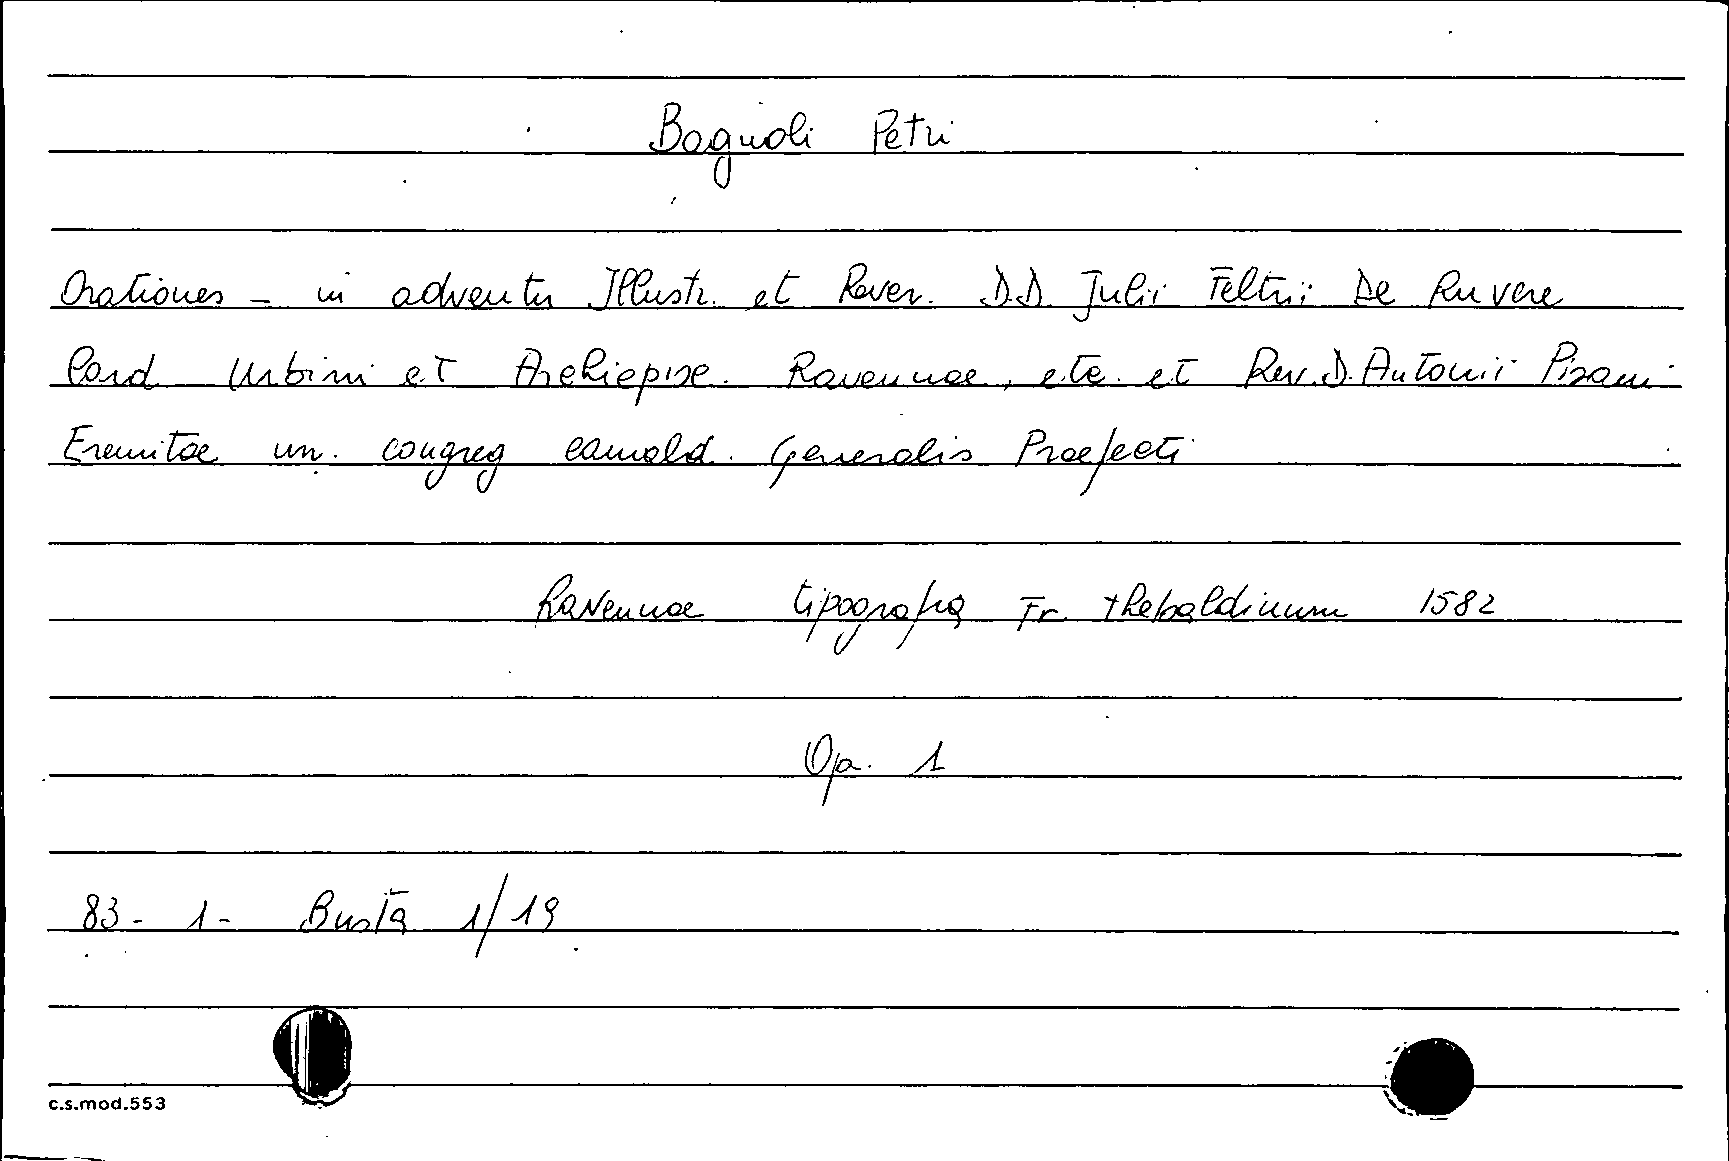 Bagnoli Petri
Orationes - in adventu Illustr. et Rever. D.D. Julii Feltrii De Ruvere
Card Urbini et Archiepisc. Ravennae, etc. et Rev. D. Antonii Pisani
Eremitae un. congreg camald. Generalis Praefecti
Ravennae tipografia Fr. Thebaldinum 1582
Op. 1
83 - 1 - Busta 1/19
c.s.mod.553